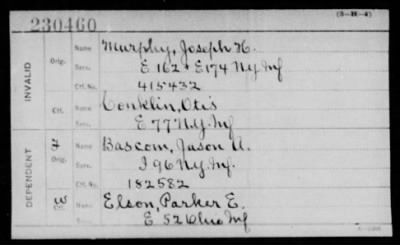 (3-H-4)
230460
INVALID
Orig.
Name Murphy, Joseph H.
Serv. E 162 & E 174 N.Y. Inf
Ctf. No. 415432
Ctf.
Name Conklin, Otis
Serv. E 77 N.Y. Inf
DEPENDENT
F
Orig.
Name Bascom, Jason A.
Serv. I 96 N.Y. Inf.
Ctf. No. 182582
W
Ctf.
Name Elson, Parker E.
Serv. E 52 Ohio Inf